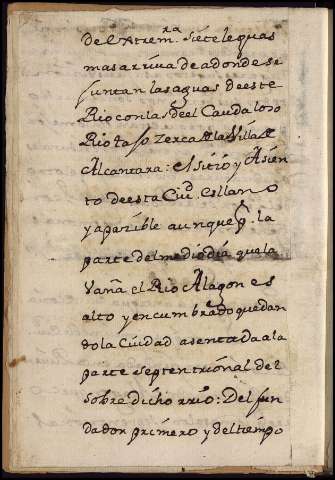 de lextrem.ra Siete leguas
mas arriva de adonde se
juntan las aguas de este
Rio con las de el Caudaloso
Rio taJo Zerca de la Villa de
Alcantara: el sitio y Asien
to de esta Ciu.d es llano
y apasible aunque p. la
parte del medio dia que la
vaña el Rio Alagon es
alto y encumbrado quedan
do la Ciudad asentada a la
parte septentrional del
sobre dicho rrio: Del fun
dador primero y del tiempo